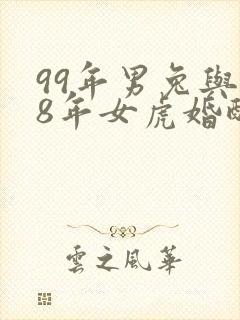 99年男兔與
8年女虎婚配
雲之風華